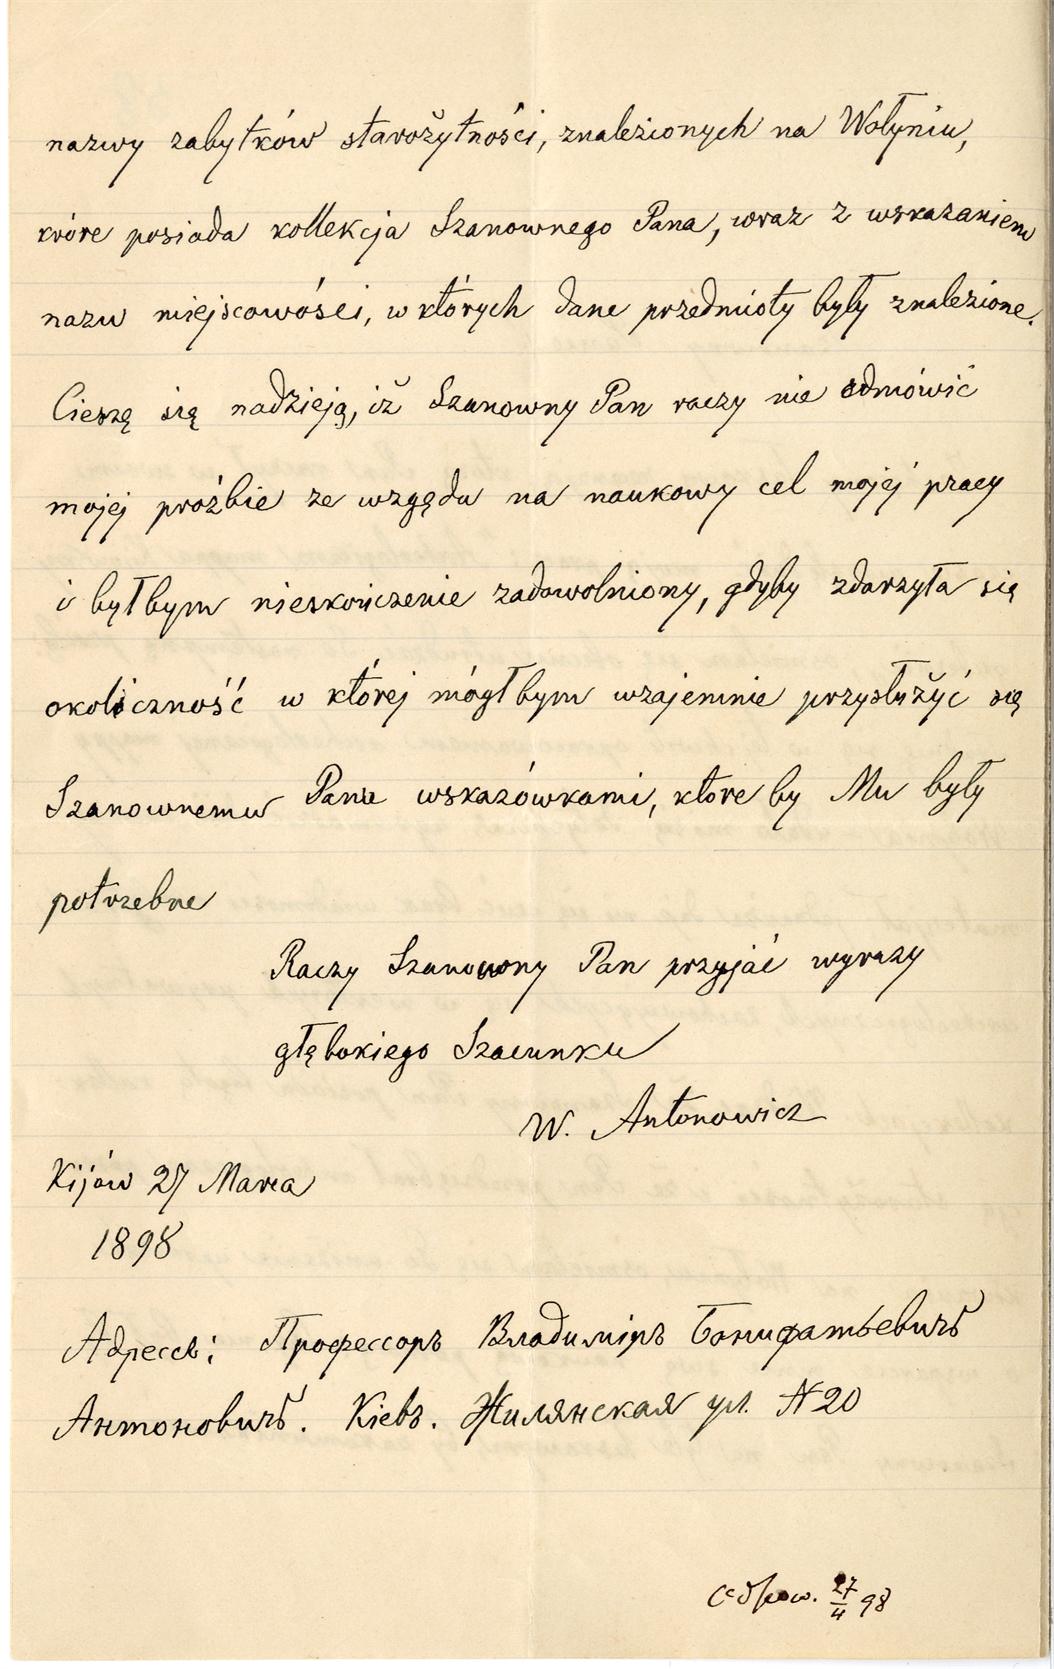 nazwy zabytków starożytności, znalezionych na Wołyniu,
które posiada kollekcja Szanownego Pana, wraz z wskazaniem
nazw miejscowości, w których dane przedmioty były znalezione.
Cieszę się nadzieją, iż Szanowny Pan raczy nie odmówić
mojej prośbie ze wzgędu na naukowy cel mojej pracy
i byłbym nieskończenie zadowolniony, gdyby zdarzyła się
okoliczność w której mógłbym wzajemnie przysłużyć się
Szanownemu Panu wskazówkami, które by Mu były
potrzebne
Raczy Szanowny Pan przyjąć wyrazy
głębokiego Szacunku
W. Antonowicz
Kijów 27 Marca
1898
Адрессъ: Профессоръ Владиміръ Бонифатьевичъ
Антоновичъ. Кіевъ. Жилянская ул. N 20
Odpow. 27/4 98